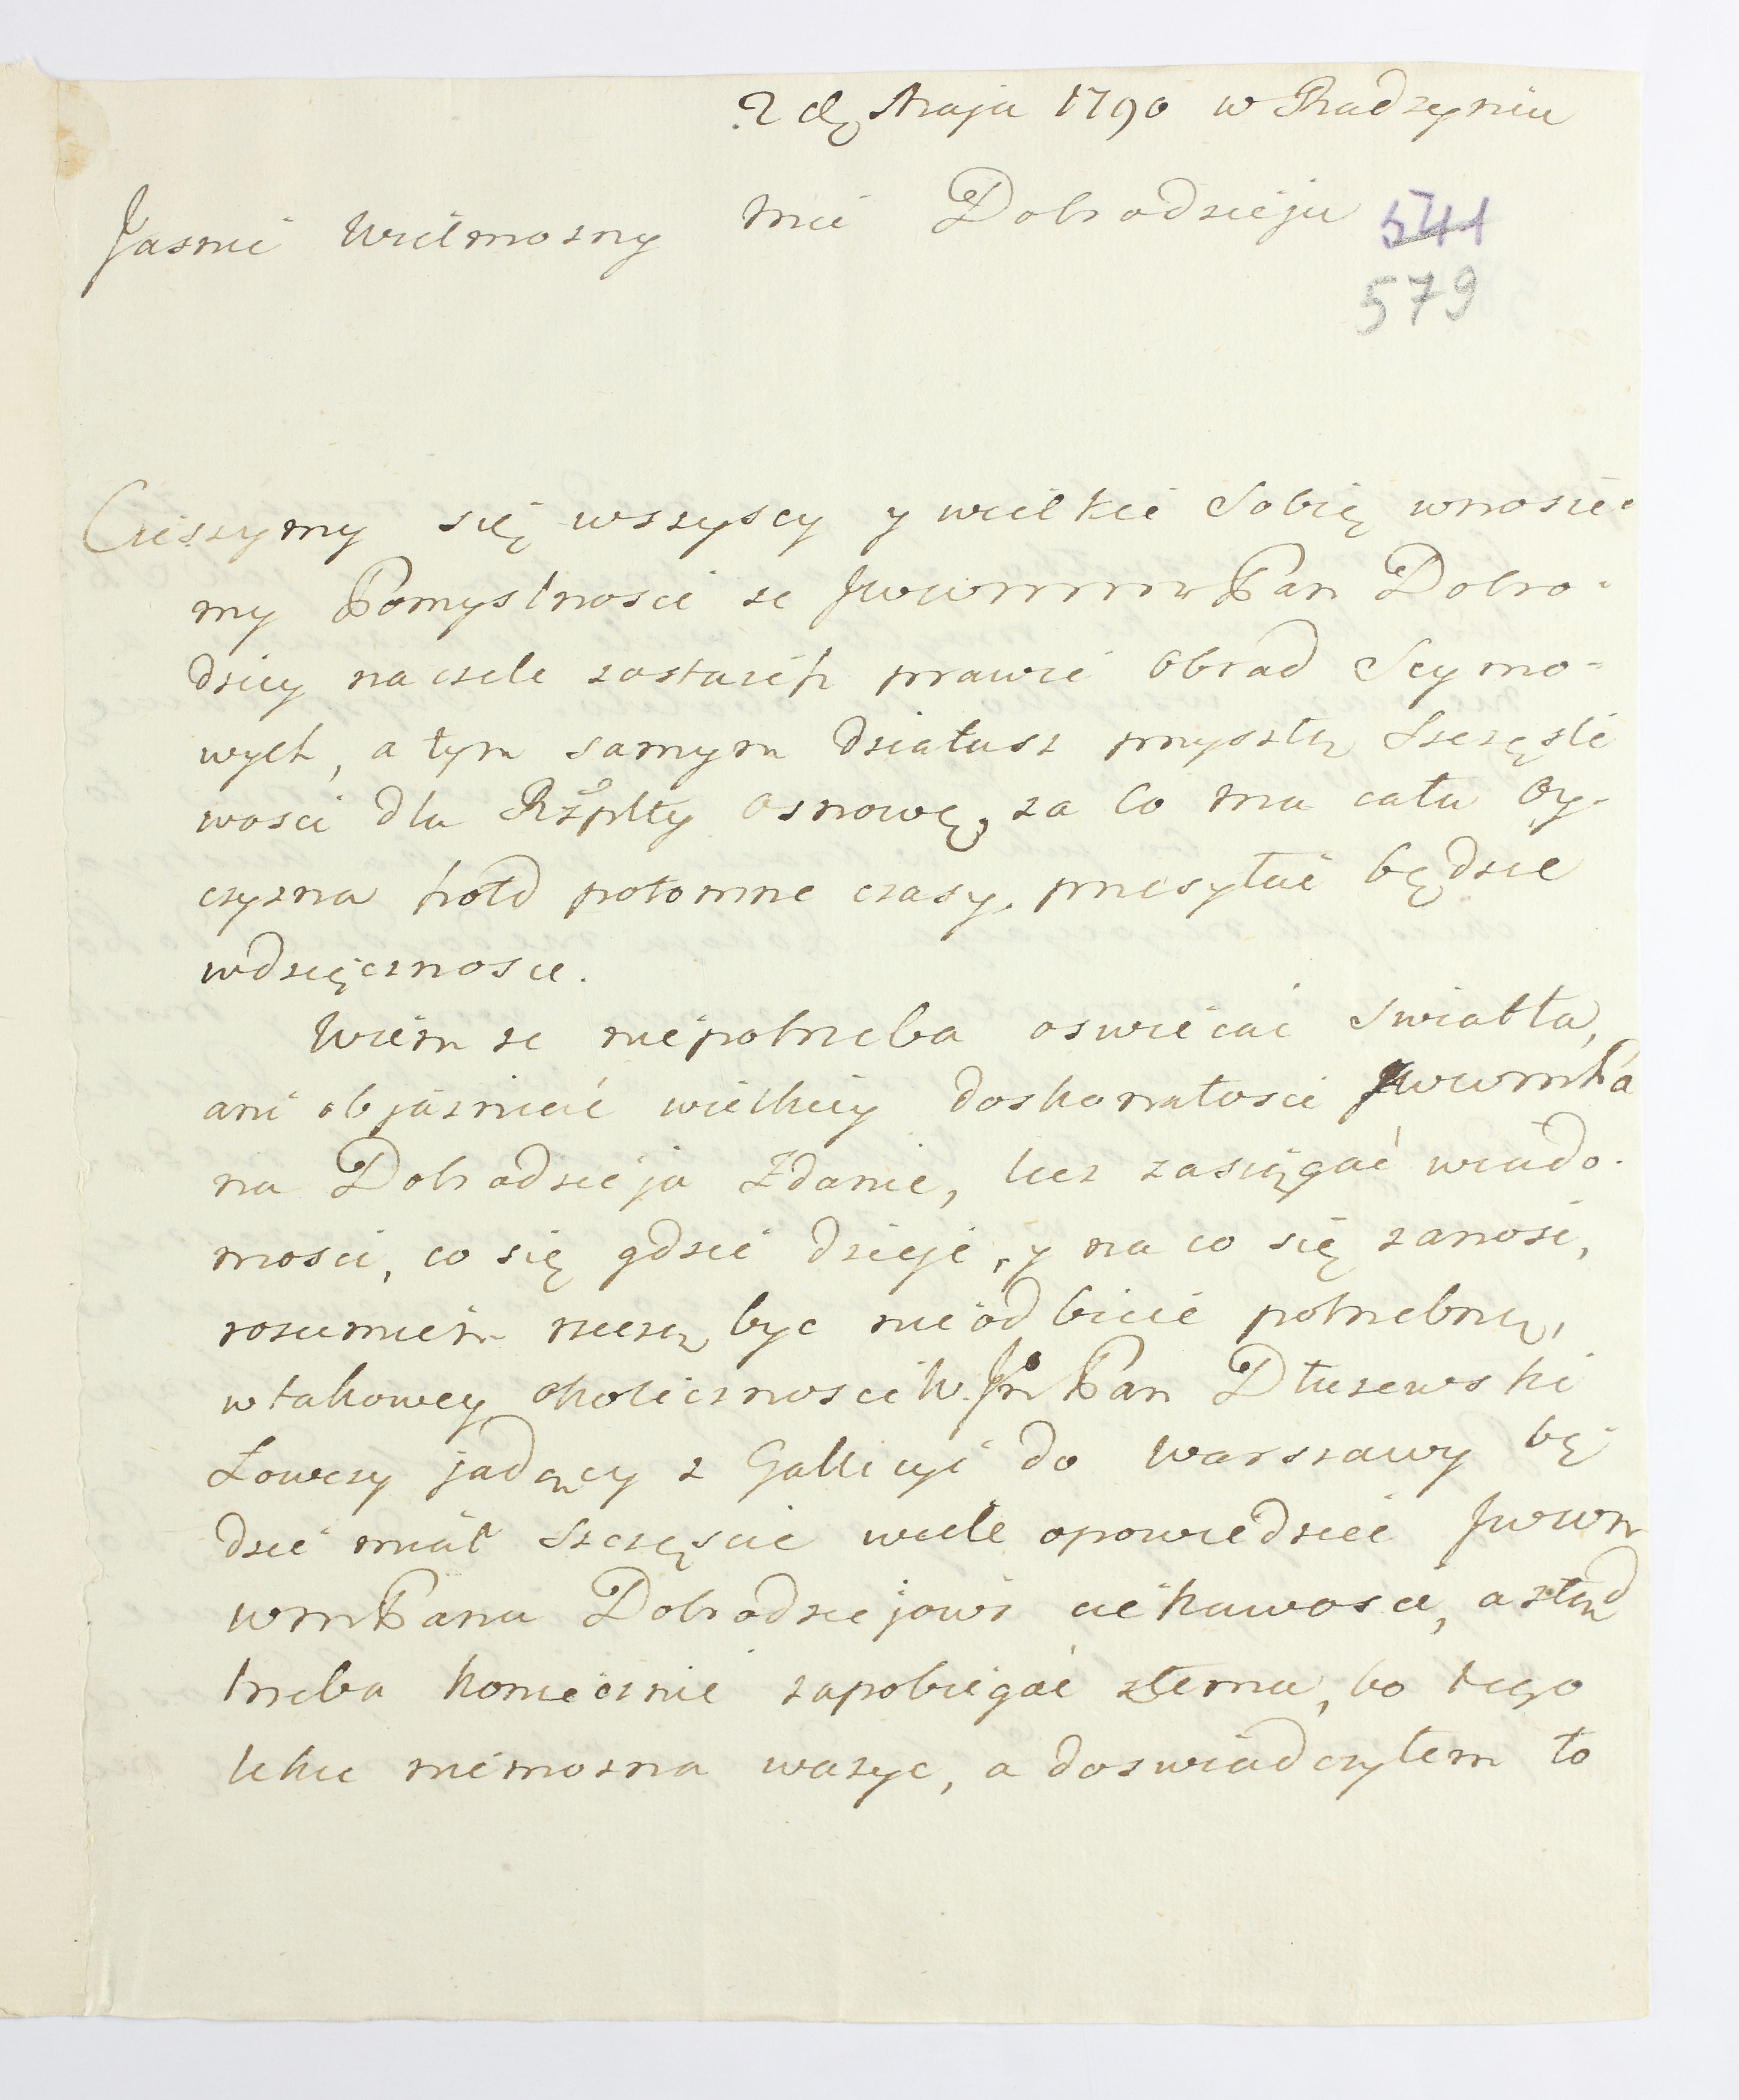 2 dą Maja 1790 w Radzyniu
Jasnie Wielmozny Mci Dobrodzieju
541
579
Cieszymy się wszyscy y wielkie Sobię wnosie-
my Pomyslnosci ze Pan Dobro-
dziey na czele zostaiesz prawie Obrad Seymo-
wych, a tym samym działasz przyszłą Szczęsli
wosci dla Rzplty osnowę, za co ma cała Oy-
czyzna hołd potomne czasy przesyłać będzie
wdzięcznosci.
Wiem ze niepotrzeba oswiecać Swiatła,
ani objasniać wielkiey doskonałosci JWWmPa
na Dobrodzieja Zdanie, lecz zasięgać wiado-
mosci, co się gdzie dzieje, y na co się zanosi,
rozumiem rzeczą byc nieodbicie potrzebną,
w takowey okolicznosci W. Jm Pan Dłuzewski
Łowczy jadący z Gallicyi do Warszawy bę
dzie miał Szczęscie wiele opowiedziec JWW
WmPanu Dobrodziejowi ciekawosci, a ztąd
trzeba koniecznie zapobiegać złemu, bo tego
lekce niemozna wazyc, a doswiadczyłem to